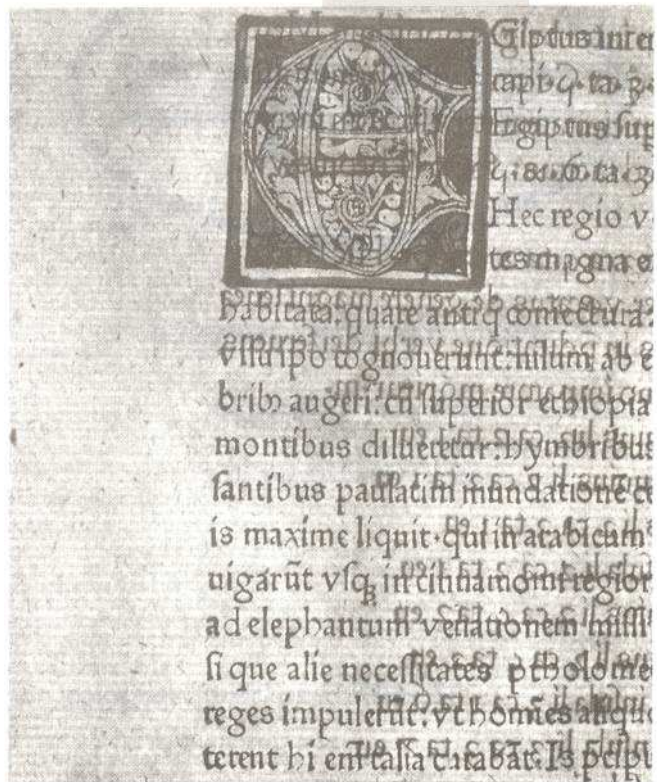 EGiptus inter
capi· ta·
Egiptus sup
ta·
Hec regio v
tes magna e
habitata: quare antiq coniectura:
cognouerunt: nilum ab e
augeri: cū superior ethiopia
montibus dilueretur: hymbribus
ſantibus paulatim inundatione ce
is maxime liquit· qui in arabicum
uigarūt vſqꝫ in cinnamomi region
ad elephantum venationem miſſi
ſi que alie neceſſitates ptholome
reges impulerūt: vt homines aliquo
terent hi talia curabāt: Is